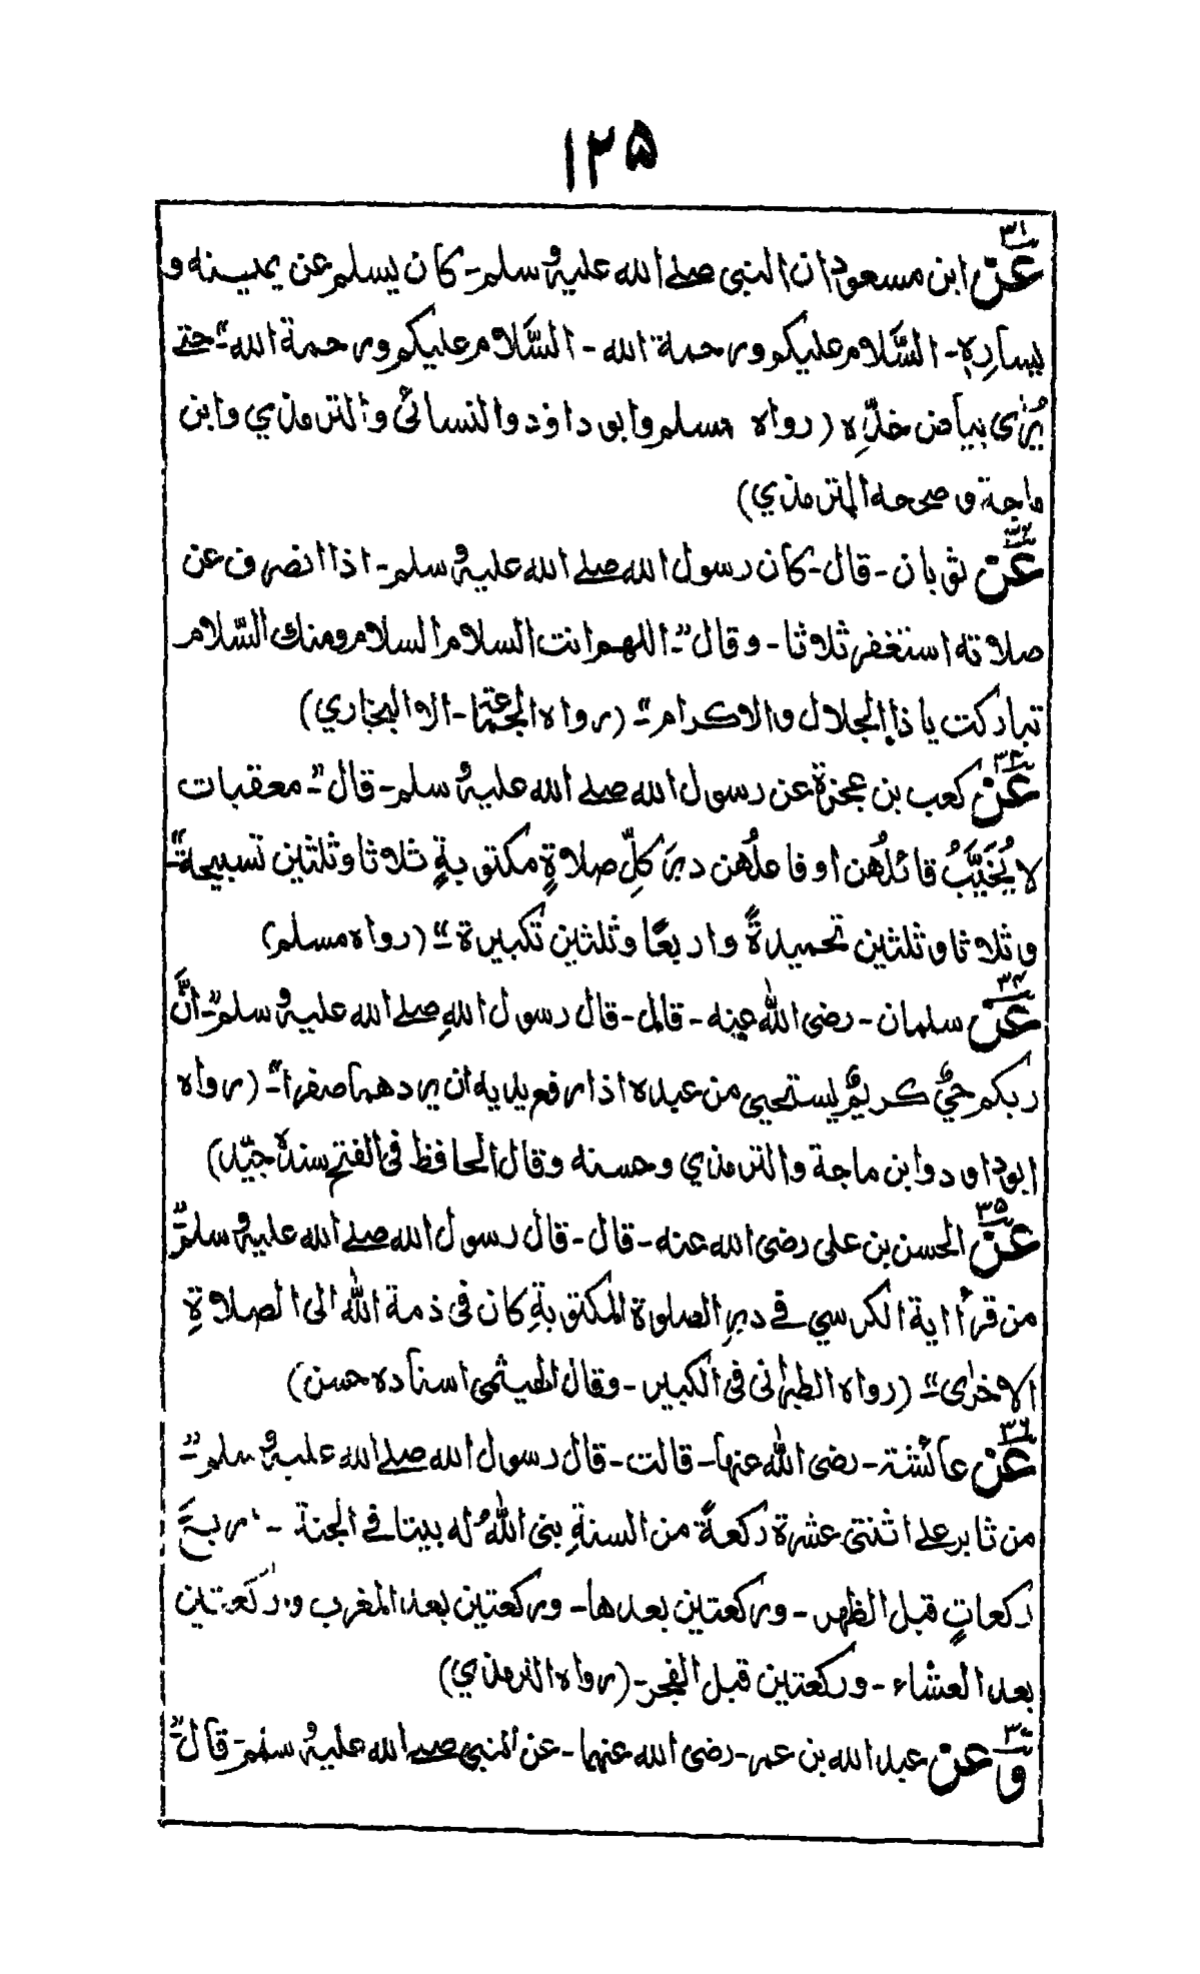 ١٢٥
٣١
عن ابن مسعود ان النبى صلے الله عليه و سلم - كان يسلم عن يمينه و
يساره - السَّلام عليكم ورحمة الله - السَّلام عليكم ورحمة الله" حتے
يُرٰى بياض خدِّه (رواه مسلم وابو داؤد والنسائى والترمذي وابن
ماجة وصححه الترمذي)
٣٢
عن ثوبان - قال - كان رسول الله صلے الله عليه و سلم - اذا انصرف عن
صلاته استغفر ثلاثا - وقال" اللهم انت السلام السلام ومنك السَّلام
تباركت يا ذا الجلال والاكرام" (رواه الجماعة - الا البخاري)
٣٣
عن كعب بن عجزة عن رسول الله صلے الله عليه و سلم - قال" معقبات
لا يُخَيَّبُ قائلُهن او فاعلُهن دبرَ كلِّ صلاةٍ مكتوبةٍ ثلاثا وثلثين تسبيحةً
و ثلاثا و ثلثين تحميدةً واربعًا وثلثين تكبيرة" (رواه مسلم)
٣٤
عن سلمان - رضى الله عنه - قال - قال رسول اللهِ صلے الله عليه و سلم" انَّ
ربكم حيٌّ كريمٌ يستحيى من عبده اذا رفع يديه ان يردهما صفرا" (رواه
ابوداود وابن ماجة والترمذي وحسنه وقال الحافظ فى الفتح سنده جيّد)
٣٥
عن الحسن بن على رضى الله عنه - قال - قال رسول الله صلے الله عليه و سلم"
من قرأ اية الكرسي فے دبرِ الصلوة المكتوبةِ كان فى ذمة الله الى الصلاةِ
الاخرٰى" (رواه الطبرانى فى الكبير - وقال الهيثمى اسناده حسن)
٣٦
عن عائشة - رضى الله عنها - قالت - قال رسول الله صلے الله عليه و سلم"
من ثابر علے اثنتى عشرة ركعةً من السنةِ بنى اللهُ له بيتا فے الجنة - اربعَ
ركعاتٍ قبل الظهر - وركعتين بعدها - وركعتين بعد المغرب و ركعتين
بعد العشاء - وركعتين قبل الفجر - (رواه الترمذي)
و عن عبد الله بن عمر - رضى الله عنهما - عن النبى صلے الله عليه و سلم - قال"